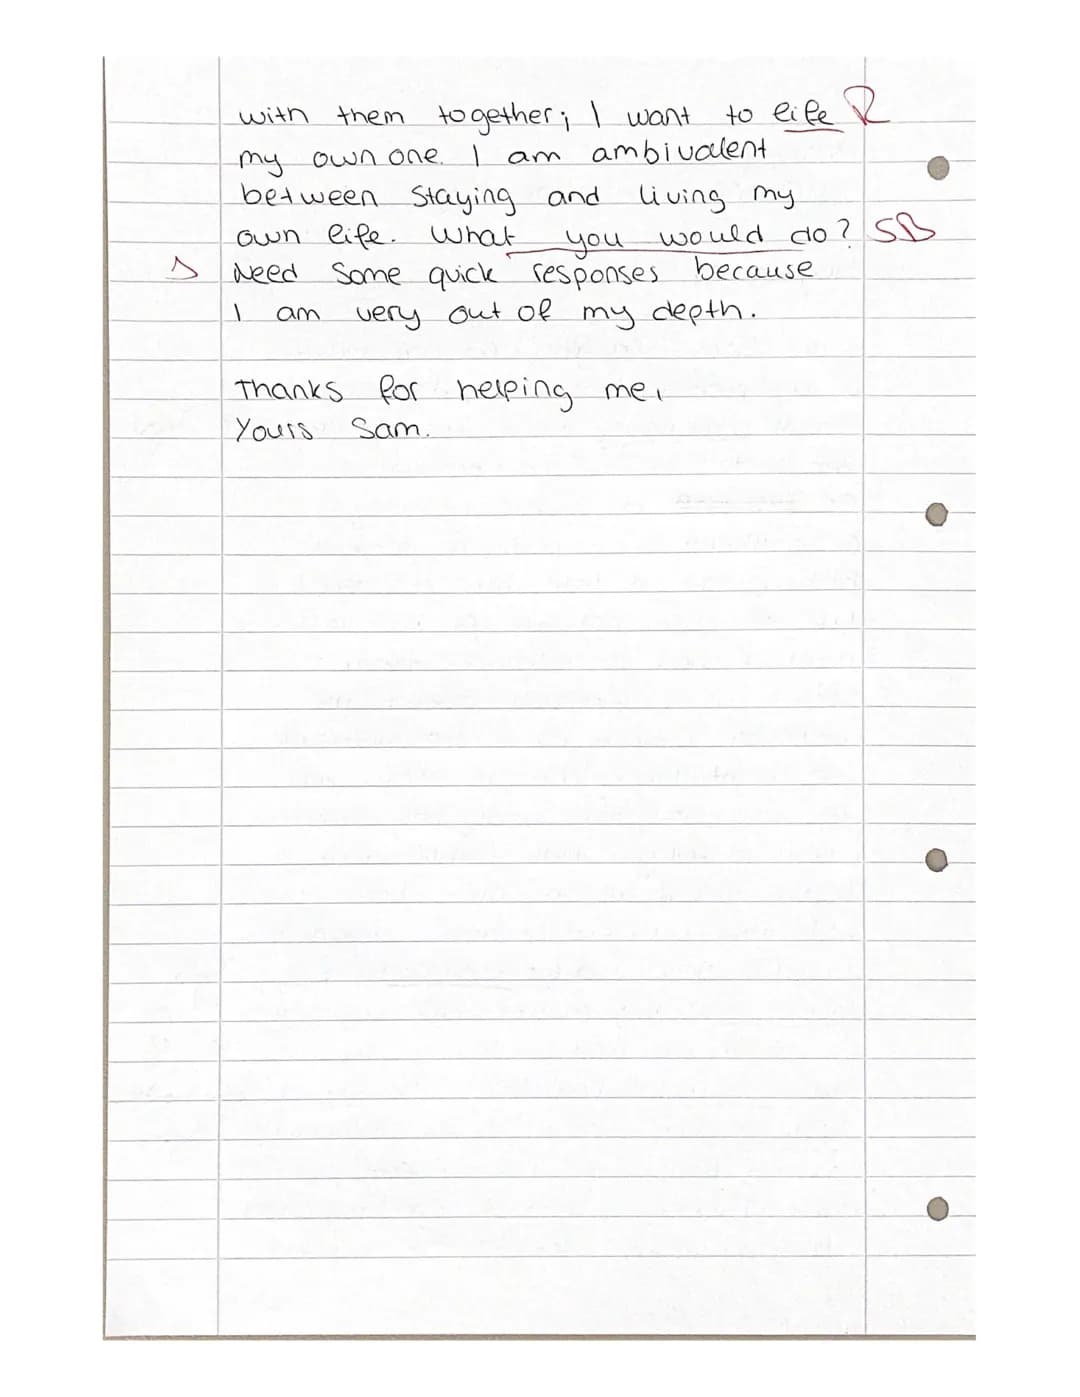 with them together; I want to life R
my own one. I am ambivalent
between staying and living my
own life. What you would do? SB
Need some quick responses because
I am very out of my depth.
Thanks for helping me,
Yours Sam.